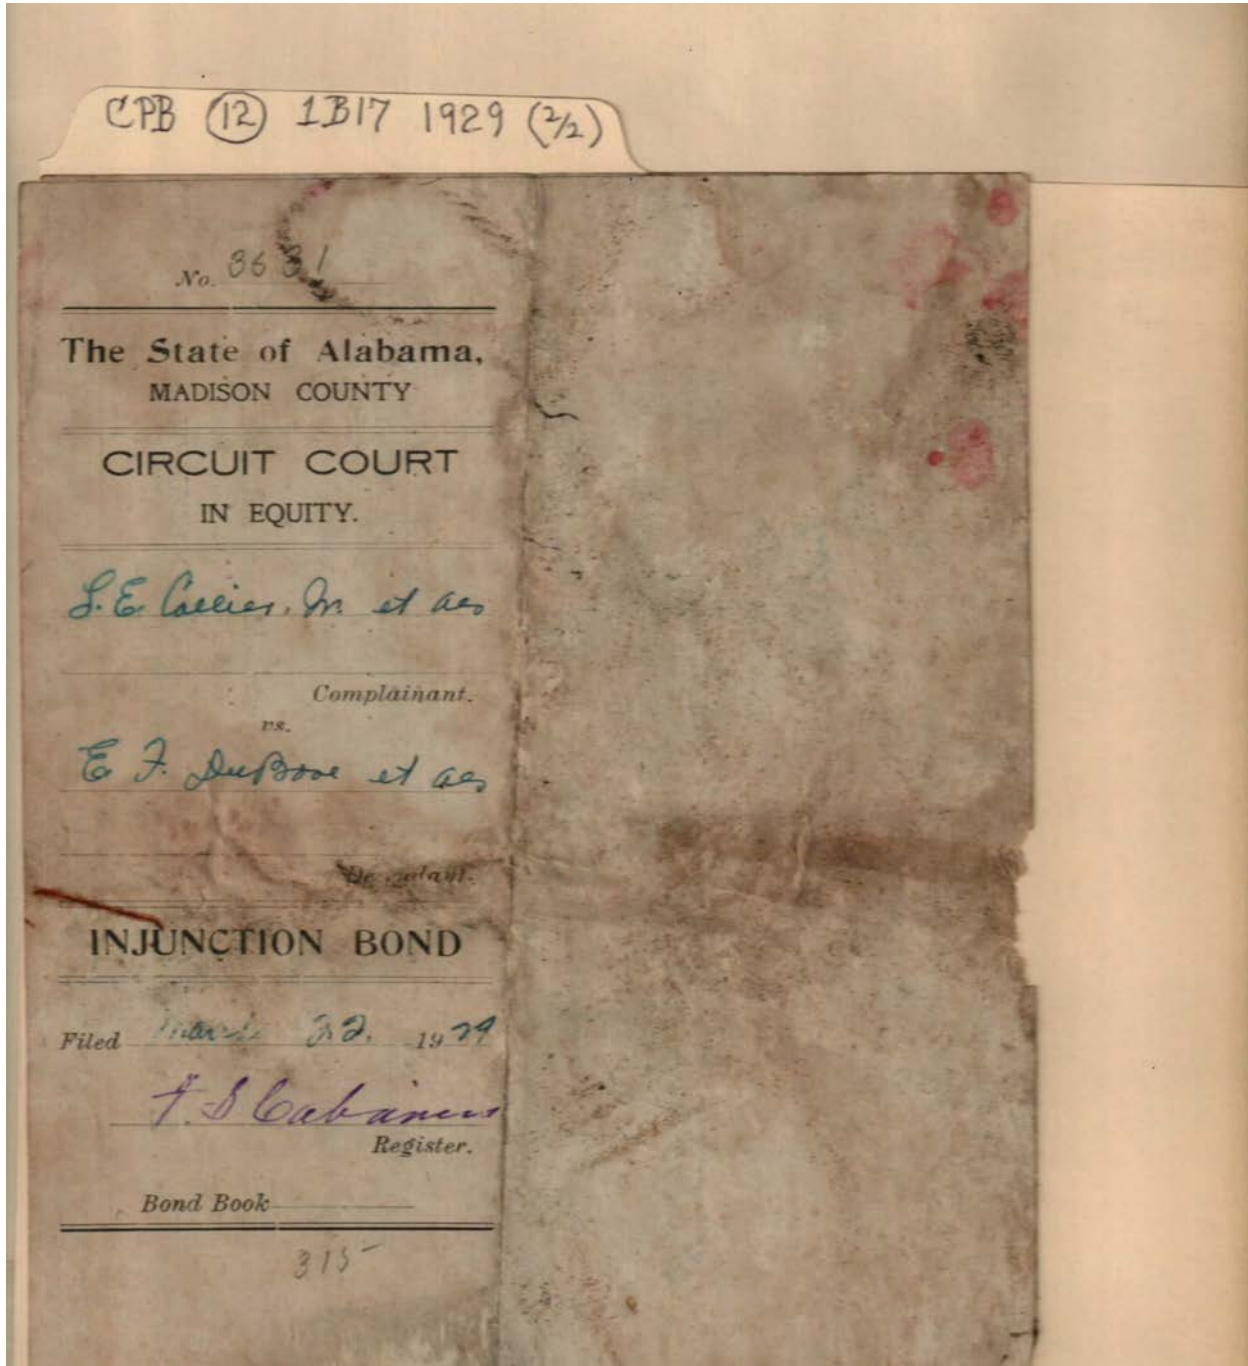 CPB 12 1B17 1929 (2/2)
No.
The State of Alabama,
MADISON COUNTY
CIRCUIT COURT
IN EQUITY.
E. Collier, Jr. et als
Complainant.
vs.
E. F. DuBose et als
Defendant.
INJUNCTION BOND
Filed March 22, 1929
Register.
Bond Book
315